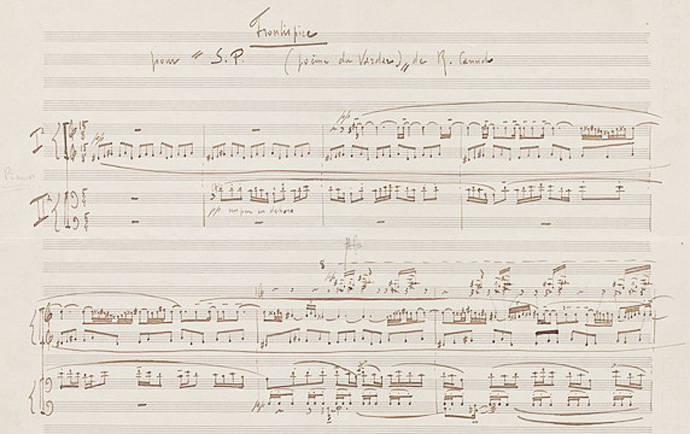 Frontispice
pour " S.P. (poème du Vardar) " de R. Canudo
pp
I°
pp
Piano
II°
pp un peu en dehors
8
pp
pp